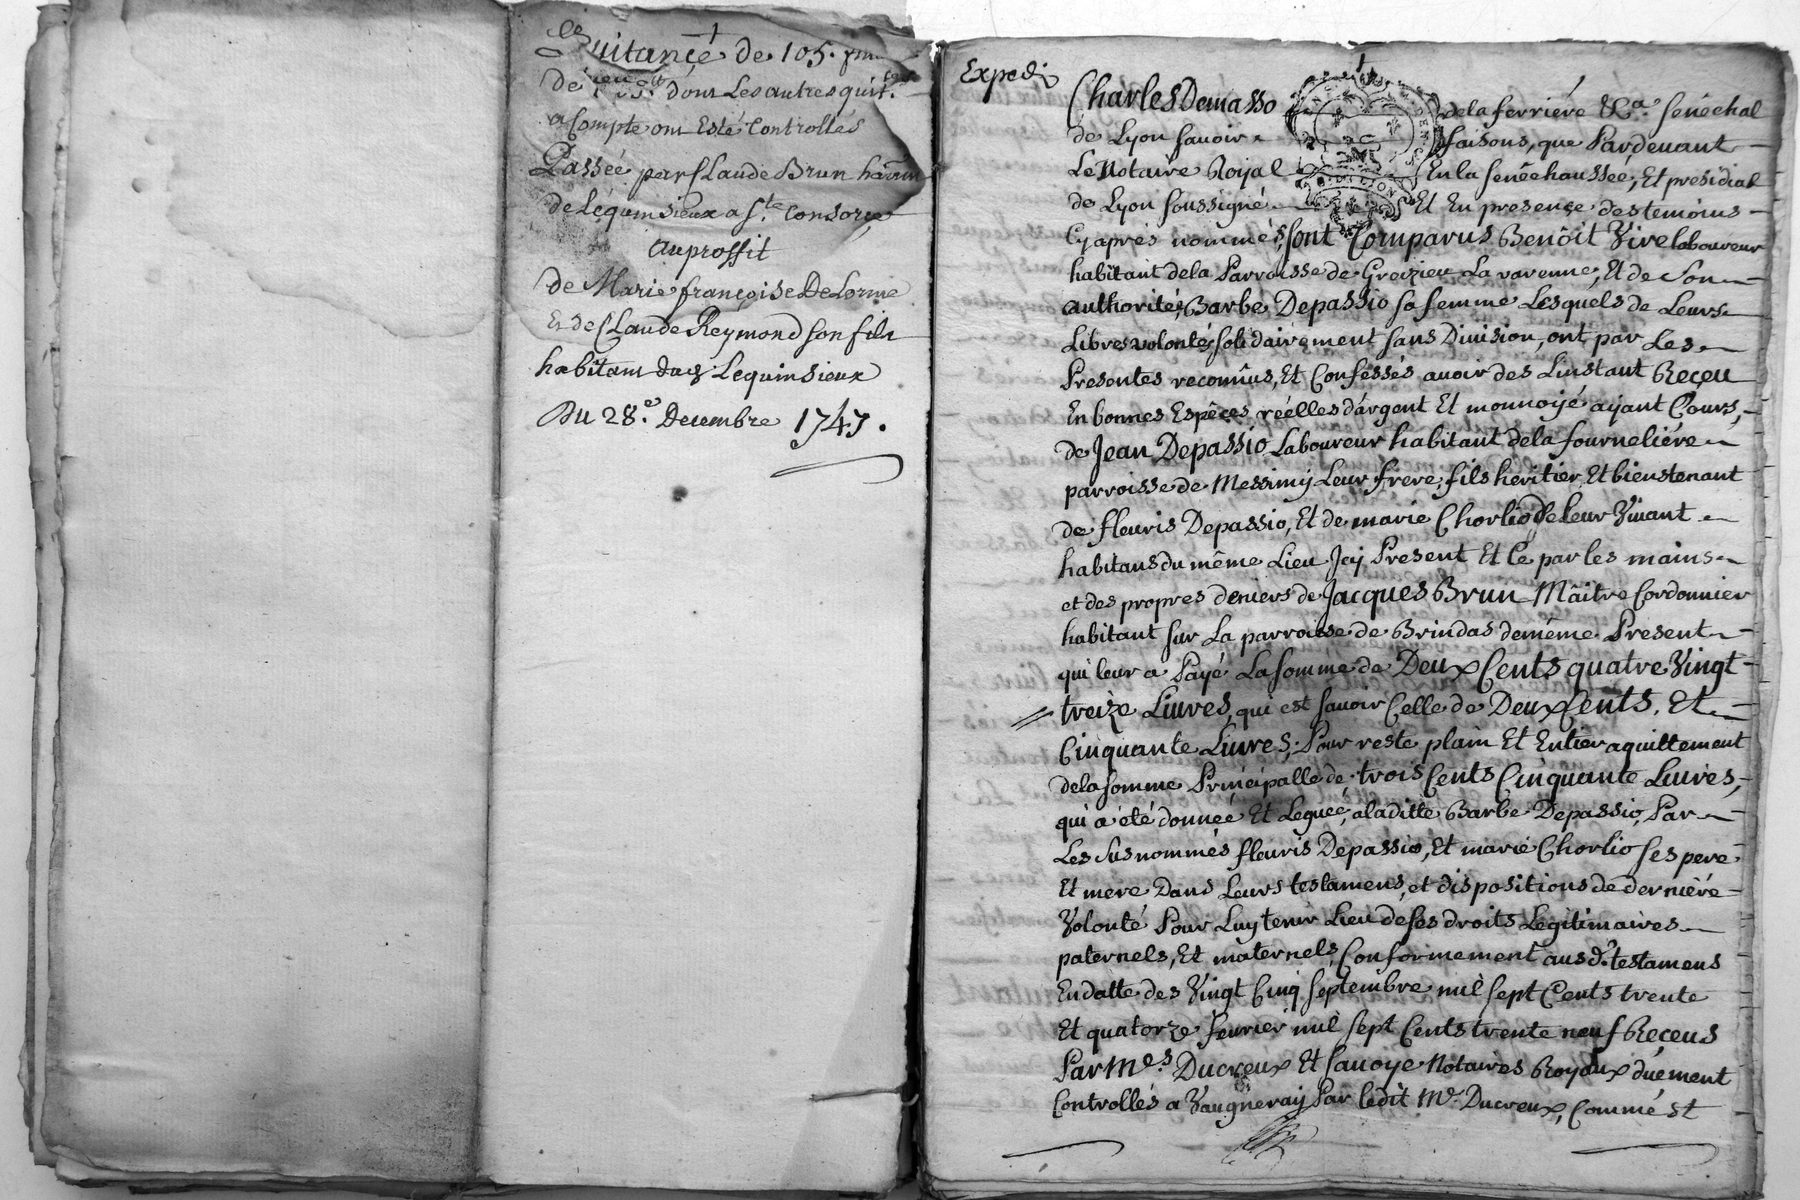 Quitance de 105.
de dont Les autres quit.ces
a Compte ont Esté Controllés
Passée par Claude Brun habitant
de Lequinsieux a S.te Consorce
au proffit
de Marie françoise DeLorme
Et de Claude Reymond son fils
habitant Lequinsieux
Du 28.e Decembre 1747.
Exped.
Charles Demasso de la ferriére &c.a senéchal
de Lyon savoir faisons, que Pardevant
Le Notaire Roijal En la senéchaussée, Et presidial
de Lyon soussigné Et En presence des temoins
Cyaprés nommés, sont Comparus Benôit Vire laboureur
habitant de la Parroisse de Greizieu La varenne, Et de Son
authorité, Barbe Depassio sa femme Lesquels de Leurs
Libres volontés, solidairement sans Division, ont par Les
Presentes reconnus, Et Confessés avoir des Linstant Reçeu
En bonnes Espéces réelles d'argent Et monnoyé aijant Cours,
de Jean Depassio Laboureur habitant de la fourneliére
parroisse de Messimij Leur frere, fils heritier, Et bienstenant
de fleuris Depassio, Et de marie Chorlio de leur Vivant
habitans du même Lieu Jcij Present Et Ce par les mains
et des propres deniers de Jacques Brun Mâitre Cordonnier
habitant sur La parroisse de Brindas deméme Present
qui leur a Payé La somme de Deux Cents quatre Vingt
treize Livres, qui est savoir Celle de Deux Cents, Et
Cinquante Livres; Pour reste plain Et Entier aquittement
de la somme Principalle de trois Cents Cinquante Livres,
qui a été donnée Et Leguée, a laditte Barbe Depassio, Par
Les susnommés fleuris Depassio, Et marie Chorlio ses pere
Et mere Dans Leurs testamens, et dispositions de derniére
Volonté Pour Luy tenir Lieu de ses droits Légitimaires
paternels, Et maternels, Conformement aus d.t testamens
En datte des Vingt Cinq septembre mil sept Cents trente
Et quatorze fevrier mil sept Cents trente neuf Reçeus
Par M.es Ducreux Et Savoye Notaires Royaux duement
Controllés a Vaugneraij Par ledit M.e Ducreux, Comme st